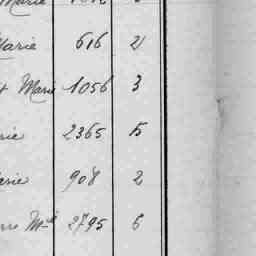 Marie
Marie 616 2
t Marie 1056 3
rie 2365 5
arie 908 2
Mlle 2795 6